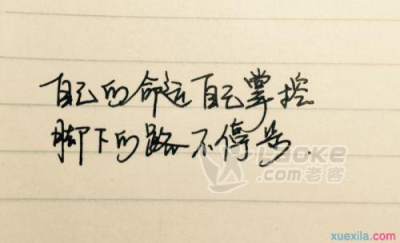 自己的命运自己掌控
脚下的路不停步.
LAOKE.com老客
xuexila.com